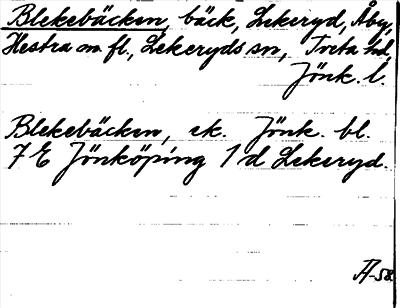 Blekebäcken, bäck, Lekeryd, Åby,
Hestra m. fl., Lekeryds sn, Tveta hd,
Jönk. l.
Blekebäcken, ek. Jönk. bl.
7 E Jönköping 1 d Lekeryd.
Ä-58